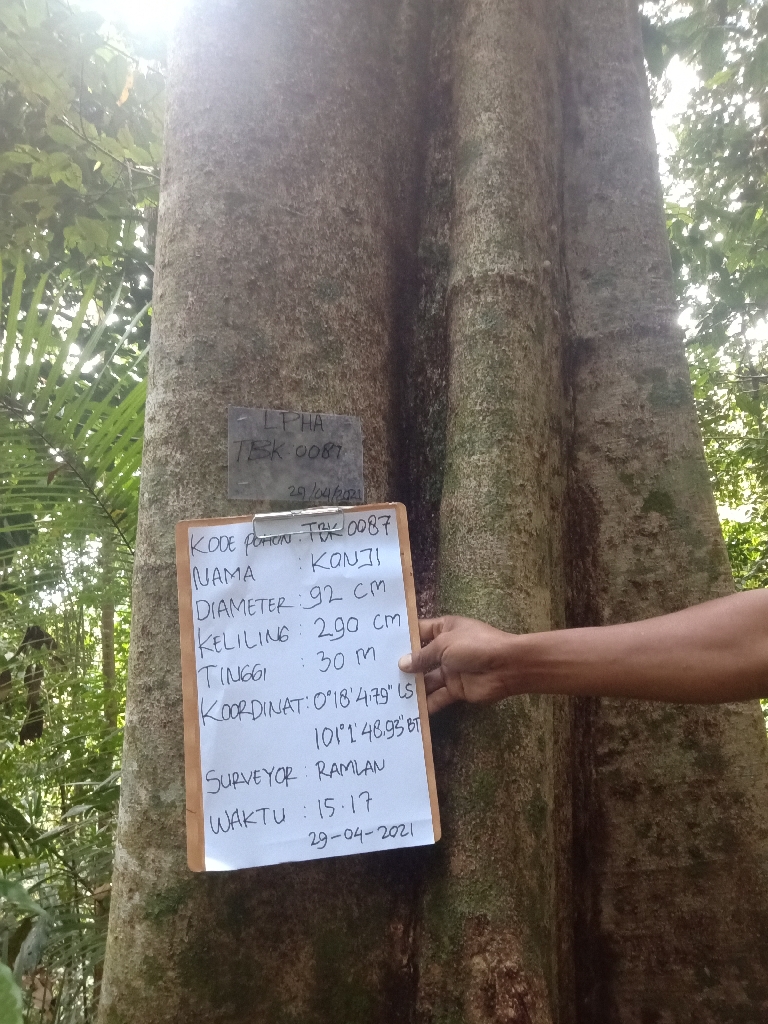 LPHA
TBK 0087
29/04/2021
KODE POHON : TBK 0087
NAMA : KONJI
DIAMETER : 92 cm
KELILING : 290 cm
TINGGI : 30 M
KOORDINAT : 0°18'4.79" LS
101°1'48.93" BT
SURVEYOR : RAMLAN
WAKTU : 15.17
29-04-2021